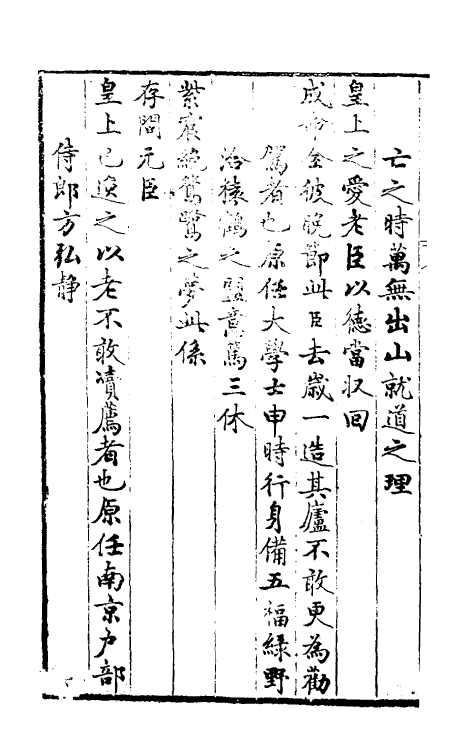 亡之時萬無出山就道之理
皇上之愛老臣以德當収回
成命全彼晚節此臣去歲一造其廬不敢更為勸
駕者也原任大學士申時行身備五福綠野
洽猿鶴之盟意篤三休
紫宸絶鴛鷺之夢此係
存問元臣
皇上已逸之以老不敢瀆薦者也原任南京户部
侍郎方弘静